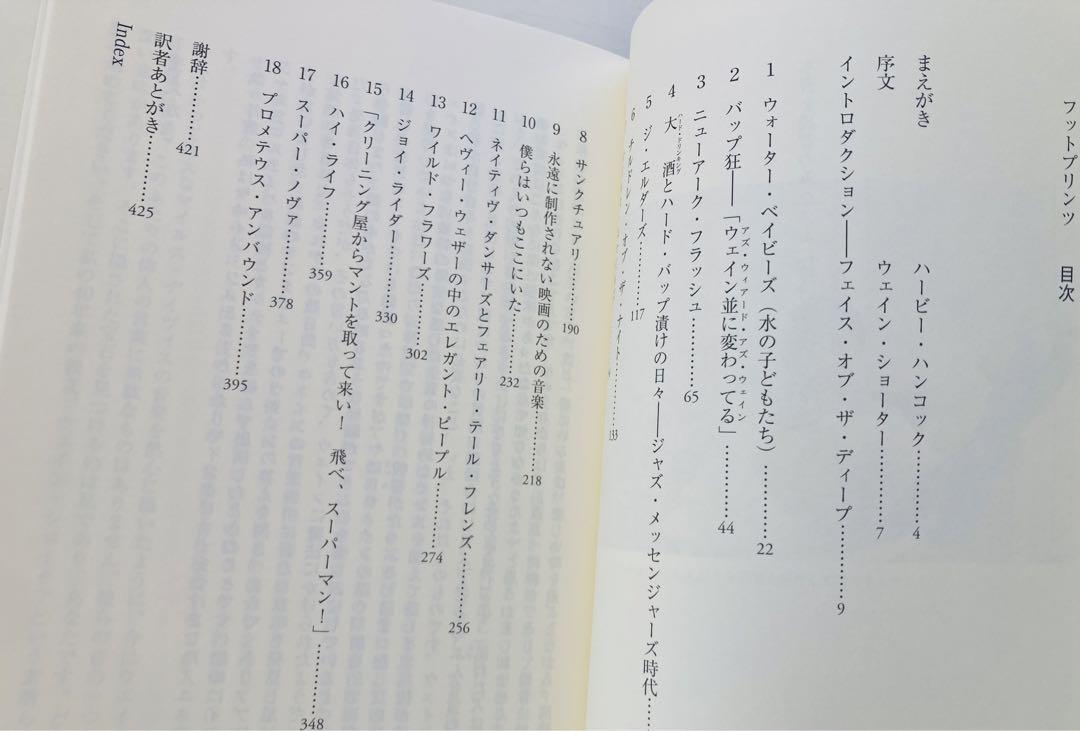 フットプリンツ　目次
まえがき　ハービー・ハンコック…………4
序文　ウェイン・ショーター…………7
イントロダクション――フェイス・オブ・ザ・ディープ…………9
1　ウォーター・ベイビーズ（水の子どもたち）…………22
アズ・ウィアード・アズ・ウェイン
2　バップ狂――「ウェイン並に変わってる」…………44
3　ニューアーク・フラッシュ…………65
ハード・ドリンキング
4　大酒とハード・バップ漬けの日々――ジャズ・メッセンジャーズ時代……
5　ジ・エルダーズ…………117
6　チルドレン・オブ・ザ・ナイト…………133
8　サンクチュアリ…………190
9　永遠に制作されない映画のための音楽…………218
10　僕らはいつもここにいた…………232
11　ネイティヴ・ダンサーズとフェアリー・テール・フレンズ…………256
12　ヘヴィー・ウェザーの中のエレガント・ピープル…………274
13　ワイルド・フラワーズ…………302
14　ジョイ・ライダー…………330
15　「クリーニング屋からマントを取って来い！　飛べ、スーパーマン！」…………348
16　ハイ・ライフ…………359
17　スーパー・ノヴァ…………378
18　プロメテウス・アンバウンド…………395
謝辞…………421
訳者あとがき…………425
Index